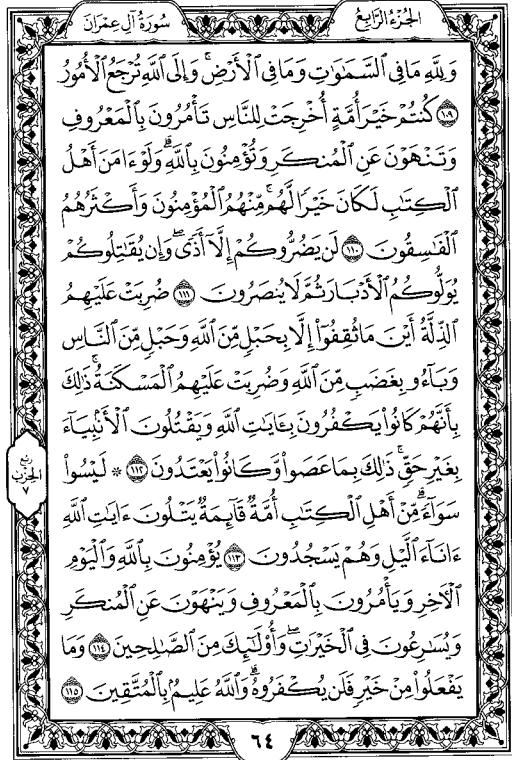 الجزء الرابع
سورة آل عمران
وَلِلَّهِ مَا فِي السَّمَٰوَٰتِ وَمَا فِي الْأَرْضِ ۚ وَإِلَى اللَّهِ تُرْجَعُ الْأُمُورُ
۝١٠٩ كُنتُمْ خَيْرَ أُمَّةٍ أُخْرِجَتْ لِلنَّاسِ تَأْمُرُونَ بِالْمَعْرُوفِ
وَتَنْهَوْنَ عَنِ الْمُنكَرِ وَتُؤْمِنُونَ بِاللَّهِ ۗ وَلَوْ ءَامَنَ أَهْلُ
الْكِتَٰبِ لَكَانَ خَيْرًا لَّهُم ۚ مِّنْهُمُ الْمُؤْمِنُونَ وَأَكْثَرُهُمُ
الْفَٰسِقُونَ ۝١١٠ لَن يَضُرُّوكُمْ إِلَّا أَذًى ۖ وَإِن يُقَٰتِلُوكُمْ
يُوَلُّوكُمُ الْأَدْبَارَ ثُمَّ لَا يُنصَرُونَ ۝١١١ ضُرِبَتْ عَلَيْهِمُ
الذِّلَّةُ أَيْنَ مَا ثُقِفُوا إِلَّا بِحَبْلٍ مِّنَ اللَّهِ وَحَبْلٍ مِّنَ النَّاسِ
وَبَاءُو بِغَضَبٍ مِّنَ اللَّهِ وَضُرِبَتْ عَلَيْهِمُ الْمَسْكَنَةُ ۚ ذَٰلِكَ
بِأَنَّهُمْ كَانُوا يَكْفُرُونَ بِـَٔايَٰتِ اللَّهِ وَيَقْتُلُونَ الْأَنبِيَاءَ
بِغَيْرِ حَقٍّ ۚ ذَٰلِكَ بِمَا عَصَوا وَّكَانُوا يَعْتَدُونَ ۝١١٢ ۞ لَيْسُوا
سَوَاءً ۗ مِّنْ أَهْلِ الْكِتَٰبِ أُمَّةٌ قَائِمَةٌ يَتْلُونَ ءَايَٰتِ اللَّهِ
ءَانَاءَ الَّيْلِ وَهُمْ يَسْجُدُونَ ۝١١٣ يُؤْمِنُونَ بِاللَّهِ وَالْيَوْمِ
الْءَاخِرِ وَيَأْمُرُونَ بِالْمَعْرُوفِ وَيَنْهَوْنَ عَنِ الْمُنكَرِ
وَيُسَٰرِعُونَ فِي الْخَيْرَٰتِ ۖ وَأُولَٰئِكَ مِنَ الصَّٰلِحِينَ ۝١١٤ وَمَا
يَفْعَلُوا مِنْ خَيْرٍ فَلَن يُكْفَرُوهُ ۗ وَاللَّهُ عَلِيمٌ بِالْمُتَّقِينَ ۝١١٥
ربع
الحزب
٧
٦٤